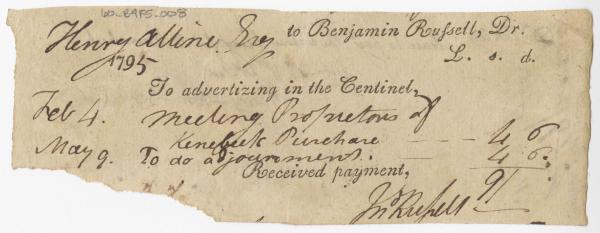 60-EAF5-008
Henry Alline Esq to Benjamin Russell, Dr.
1795 L. s. d.
To advertizing in the Centinel,
Feb 4. meeting Proprietors of
Kenebeck Purchase — 4 6
May 9. To do adjournment. — 4 6.
Received payment, 9/
Jno Russell